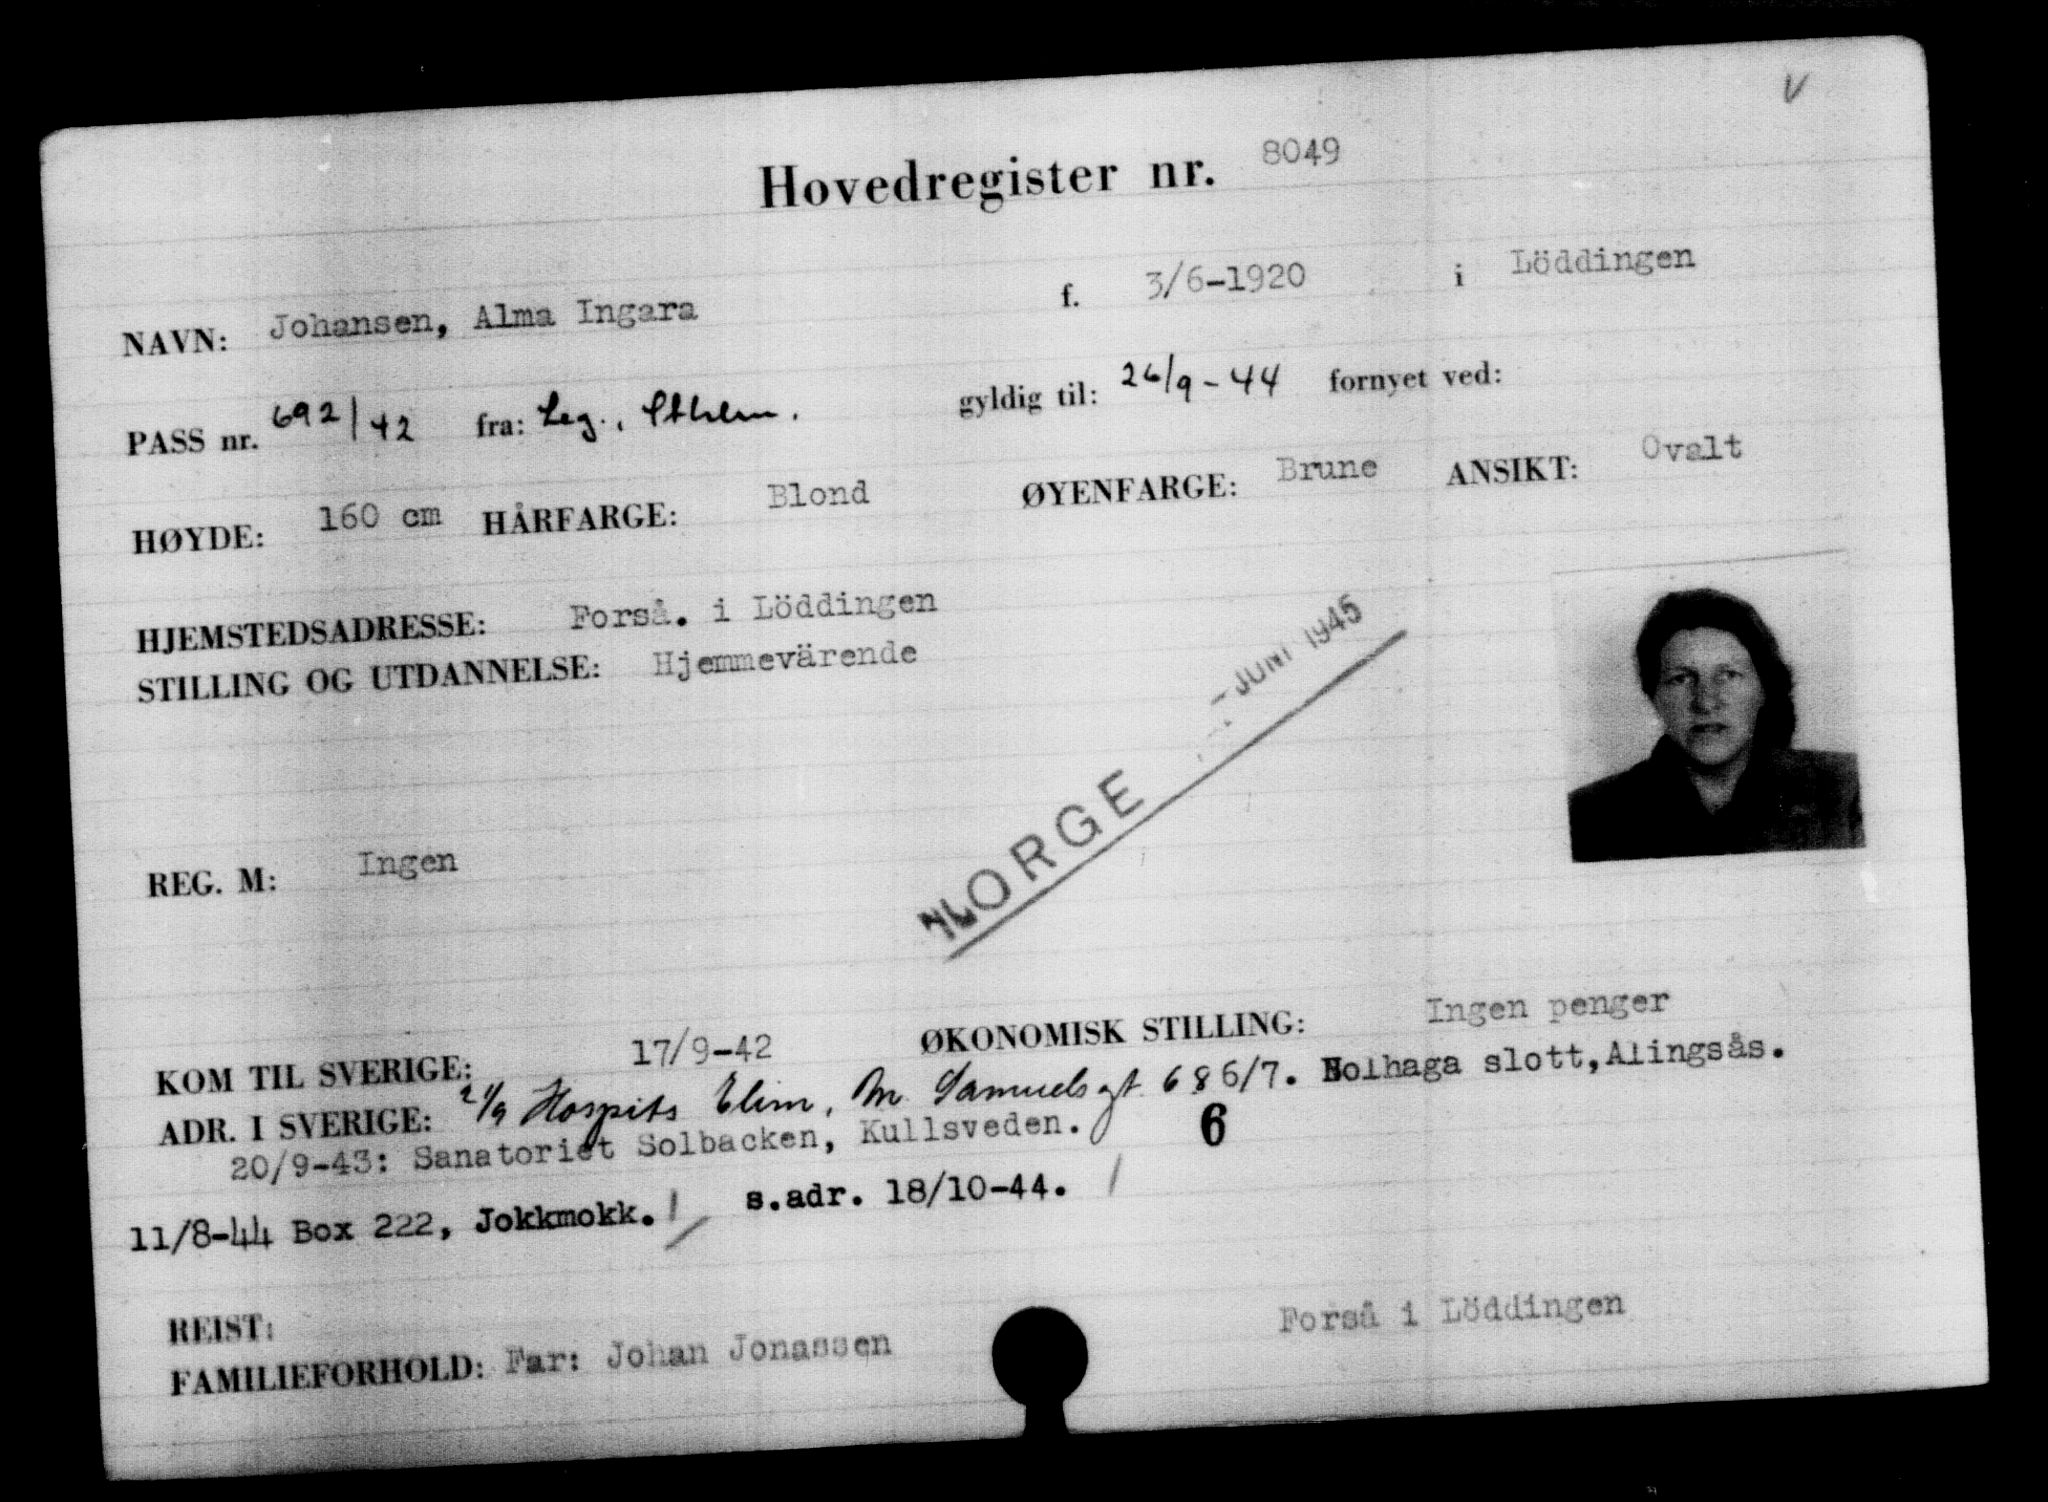 V
Hovedregister nr. 8049
NAVN: Johansen, Alma Ingara f. 3/6-1920 i Löddingen
PASS nr. 692/42 fra: Leg., Sthlm. gyldig til: 26/9-44 fornyet ved:
HØYDE: 160 cm HÅRFARGE: Blond ØYENFARGE: Brune ANSIKT: Ovalt
HJEMSTEDSADRESSE: Forså. i Löddingen
STILLING OG UTDANNELSE: Hjemmevärende
- JUNI 1945
NORGE
REG. M: Ingen
KOM TIL SVERIGE: 17/9-42 ØKONOMISK STILLING: Ingen penger
ADR. I SVERIGE: 21/9 Hospits Elim, M. Samuelsgt. 68 6/7. Bolhaga slott, Alingsås.
20/9-43: Sanatoriet Solbacken, Kullsveden. 6
11/8-44 Box 222, Jokkmokk. s.adr. 18/10-44.
REIST:
FAMILIEFORHOLD: Far: Johan Jonassen Forså i Löddingen